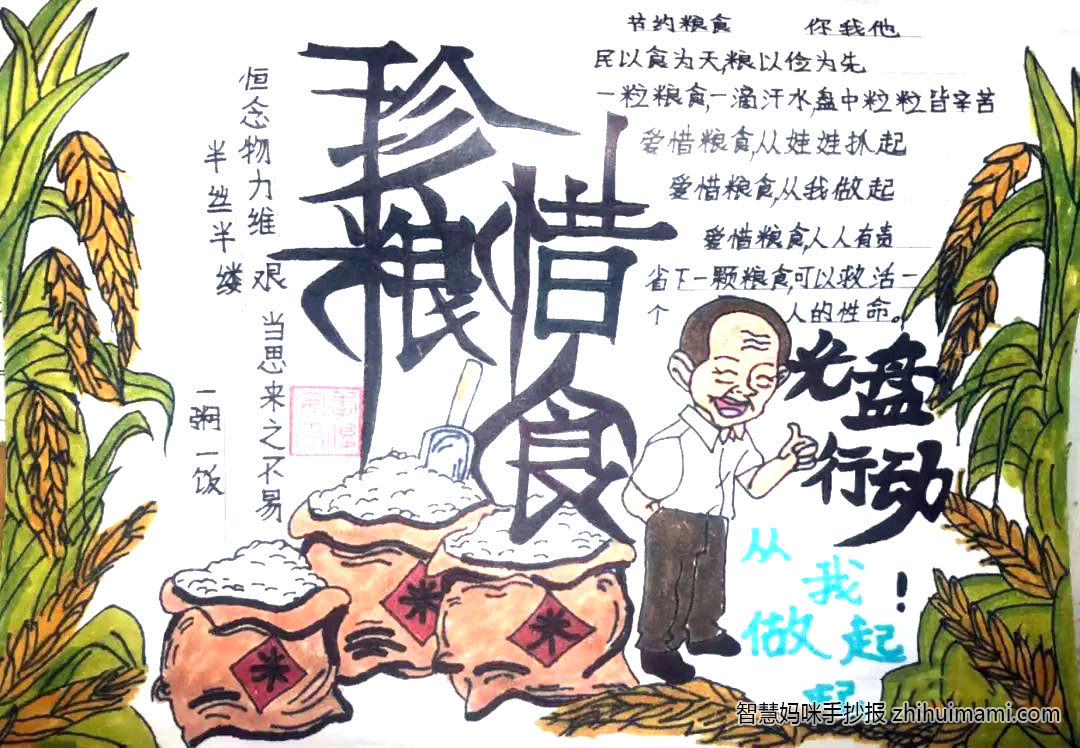 珍惜
粮食
节约粮食 你我他
民以食为天,粮以俭为先
一粒粮食,一滴汗水,盘中粒粒皆辛苦
爱惜粮食,从娃娃抓起
爱惜粮食,从我做起
爱惜粮食,人人有责
省下一颗粮食,可以救活一
个 人的性命。
恒念物力维艰
半丝半缕
当思来之不易
一粥一饭
光盘
行动
从我
做起!
起
米
米
米
智慧妈咪手抄报 zhihuimami.com